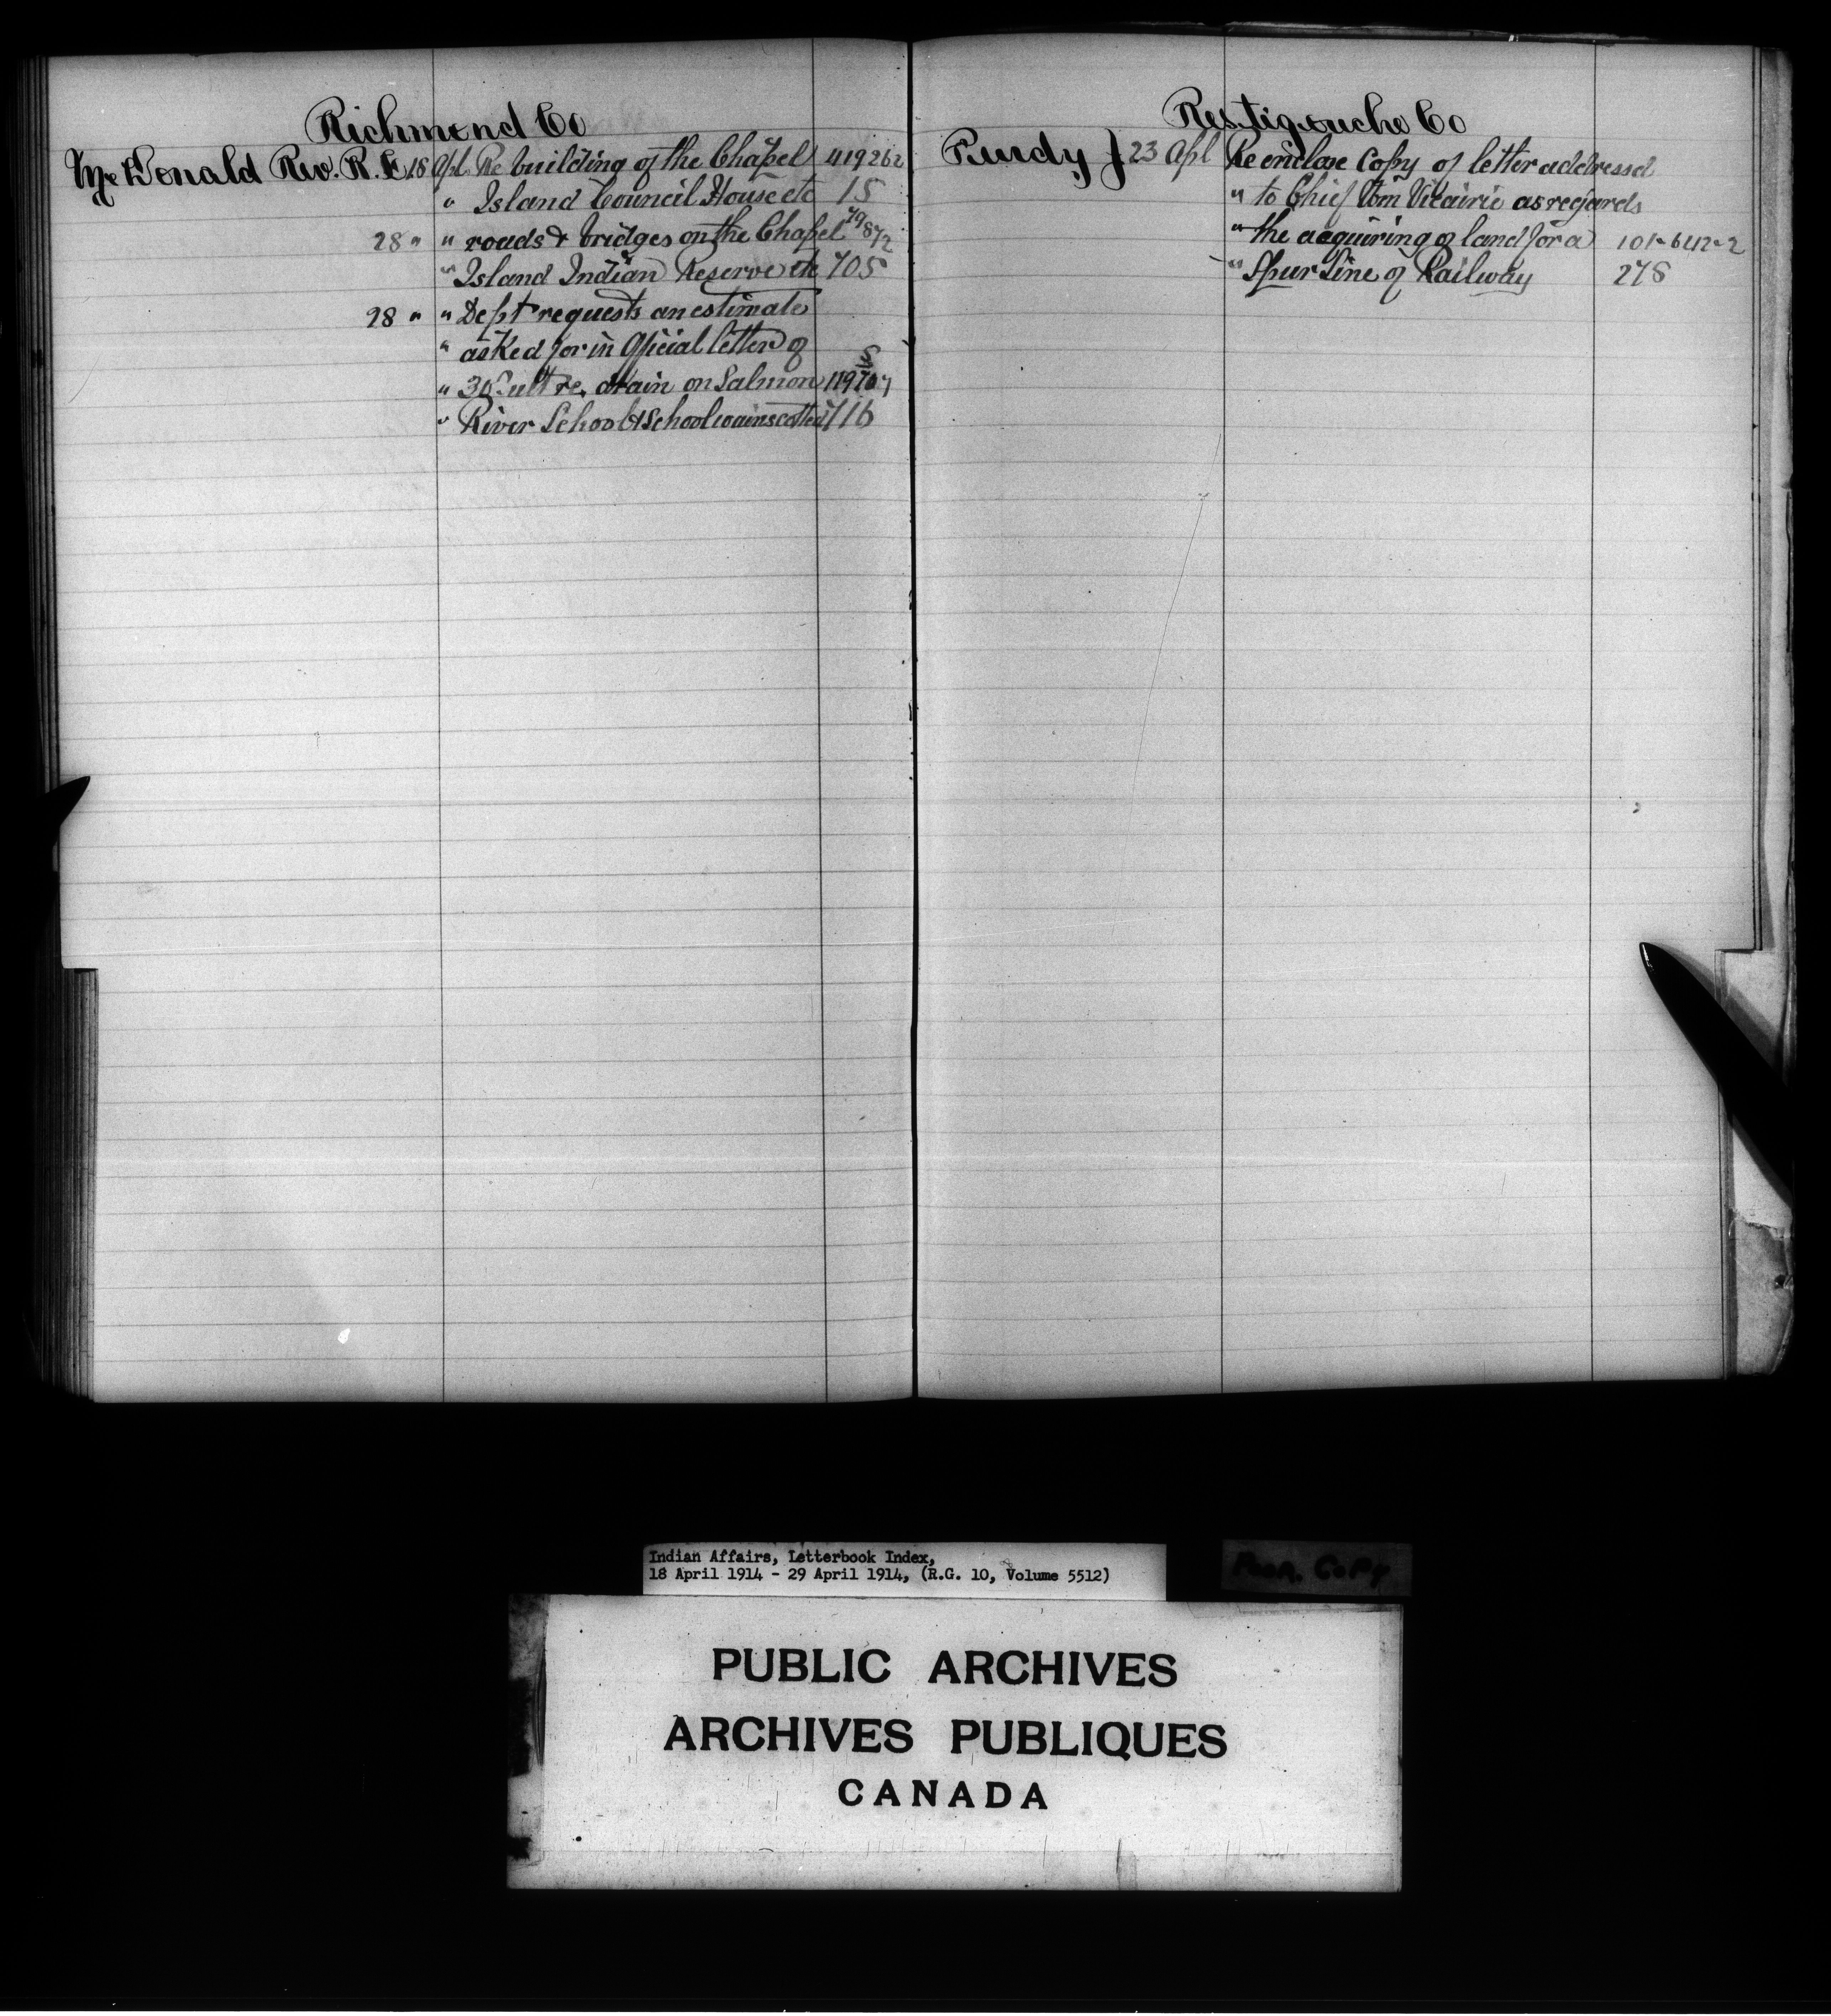 Richmond Co
McDonald Rev. R. L. 18 Apl Re building of the Chapel 419262
" Island Council House etc 15
28 " " roads & bridges on the Chapel 79872
" Island Indian Reserve etc 705
28 " " Dept requests an estimate
" asked for in Official letter of
" 30 ult re. drain on Salmon 119707 5
" River School & School wainscotted 716
Restigouche Co
Purdy J 23 Apl Re enclose Copy of letter addressed
" to Chief Tom Vicairie as regards
" the acquiring of land for a 101-642-2
" Spur line of Railway 278
Indian Affairs, Letterbook Index,
18 April 1914 - 29 April 1914, (R.G. 10, Volume 5512)
Poor. Copy
PUBLIC ARCHIVES
ARCHIVES PUBLIQUES
CANADA